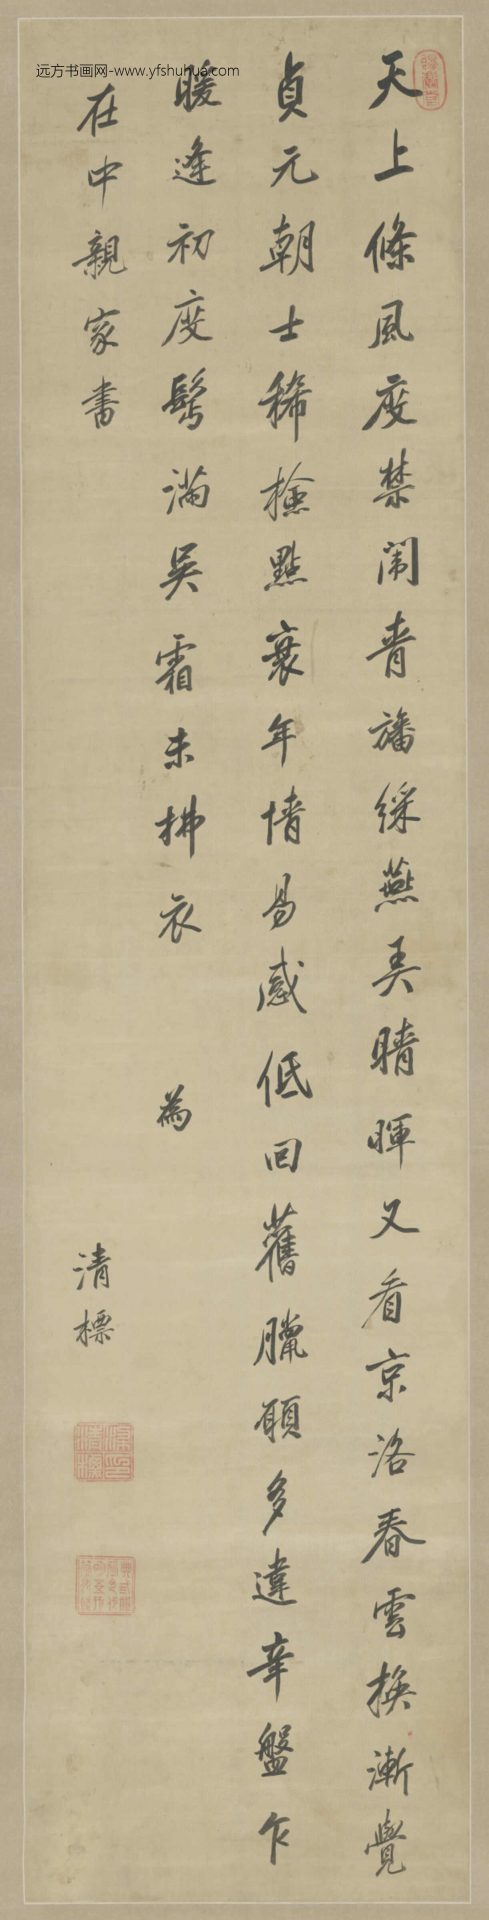 远方书画网-www.yfshuhua.com
天上條風度禁闈青旛綵燕弄晴暉又看京洛春雲換漸覺
貞元朝士稀檢點衰年情易感低回舊臘願多違辛盤乍
暖逢初度髩滿吳霜未拂衣 為
在中親家書
清標